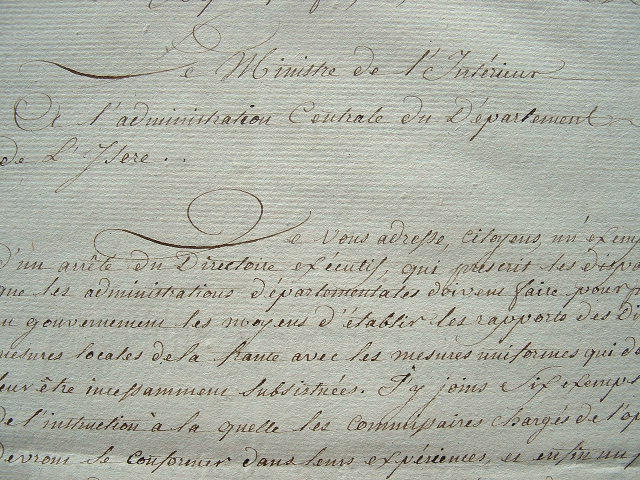 Le Ministre de l'Intérieur
A l'administration Centrale du Département
de L'Isere . .
Je vous adresse, citoyens, un exemp
d'un arrêté du Directoire exécutif, qui prescrit les dispo
que les administrations départementales doivent faire pour p
au gouvernement les moyens d'établir les rapports des Di
mesures locales de la france avec les mesures uniformes qui do
leur être incessamment substituées. J'y joins six exemp
de l'instruction à la quelle les Commissaires chargés de l'op
devront se conformer dans leurs expériences, et enfin un